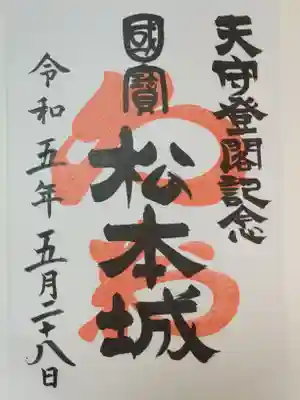 天守登閣記念
國寳
松本城
令和五年五月二十八日